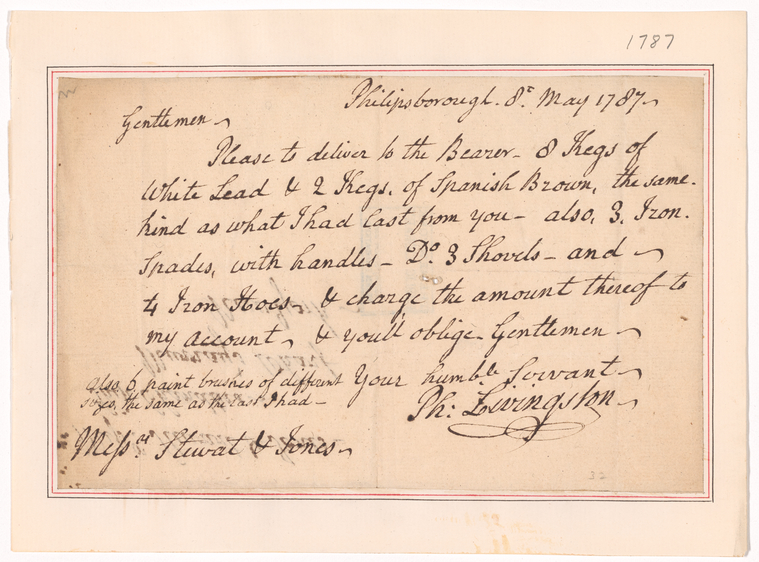 1787
Philipsborough. 8th. May 1787
Gentlemen
Please to deliver to the Bearer - 8 Kegs of
White Lead & 2 Kegs. of Spanish Brown, the same
kind as what I had last from you - also, 3, Iron.
Spades, with handles - Do. 3 Shovels - and
4 Iron Hoes, & charge the amount thereof to
my account, & youll oblige - Gentlemen
Your humble Servant
Ph: Livingston
also 6 paint brushes of different
sizes, the same as the last I had -
Messrs Stewat & Jones
32